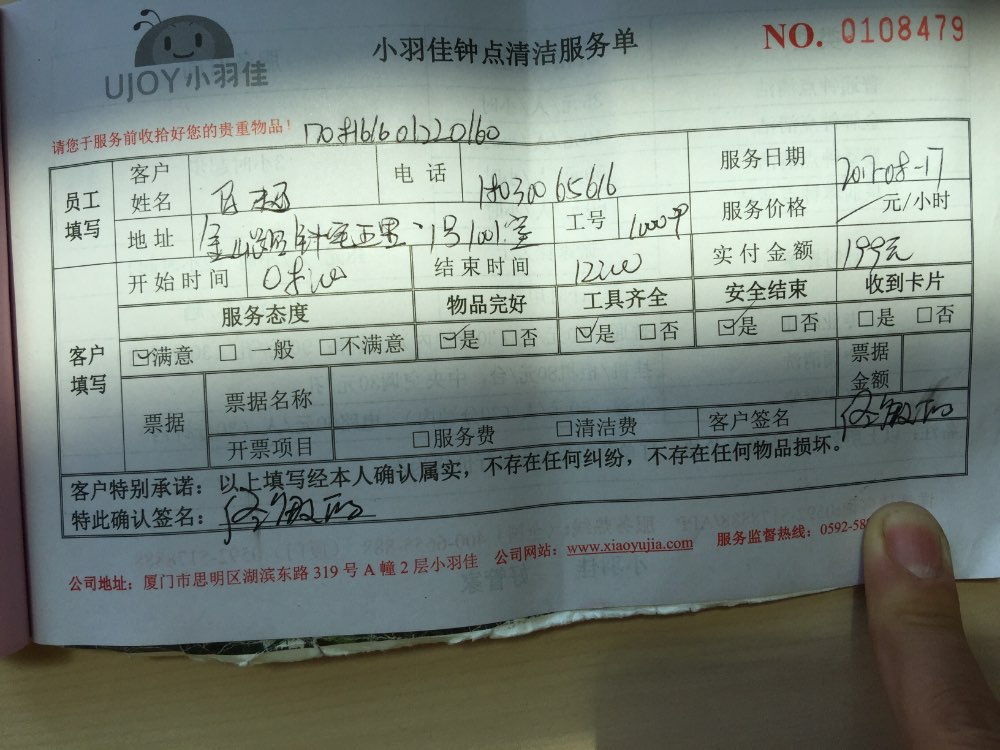 UJOY小羽佳
小羽佳钟点清洁服务单
NO. 0108479
请您于服务前收拾好您的贵重物品!
员工填写 客户姓名 电话 服务日期 2017-08-17
地址 1号1001室 工号 服务价格 元/小时
客户填写 开始时间 结束时间 12:00 实付金额 199元
服务态度 物品完好 工具齐全 安全结束 收到卡片
☑满意 □ 一般 □不满意 ☑是 □否 ☑是 □否 ☑是 □否 □是 □否
票据 票据名称 票据金额
开票项目 □服务费 □清洁费 客户签名
客户特别承诺:以上填写经本人确认属实,不存在任何纠纷,不存在任何物品损坏。
特此确认签名:
公司地址:厦门市思明区湖滨东路 319 号 A 幢 2 层小羽佳 公司网站:www.xiaoyujia.com 服务监督热线:0592-58